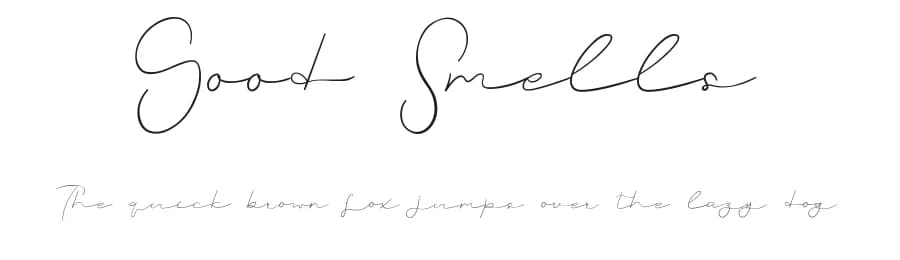 Good Smells
The quick brown fox jumps over the lazy dog